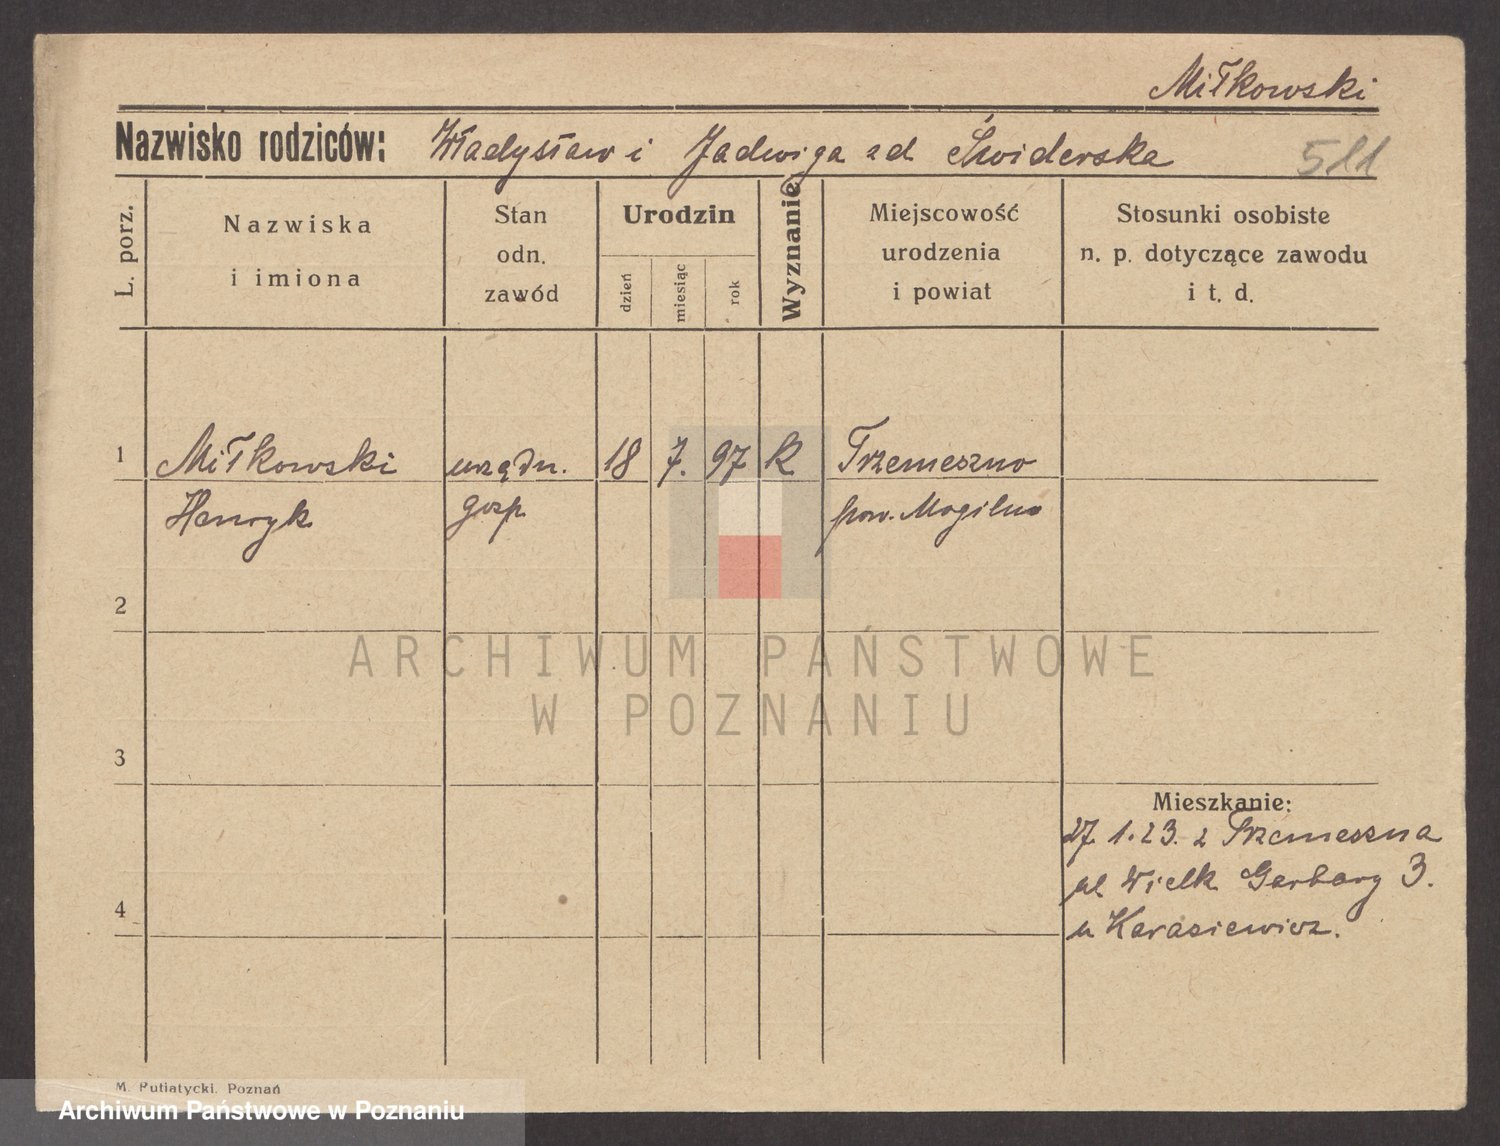 Miłkowski
Nazwisko rodziców: Władysław i Jadwiga zd Świderska
511
L. porz.
Nazwiska
i imiona
Stan
odn.
zawód
Urodzin
dzień
miesiąc
rok
Wyznanie
Miejscowość
urodzenia
i powiat
Stosunki osobiste
n. p. dotyczące zawodu
i t. d.
1 Miłkowski urzędn. 18 7. 97 k Trzemeszno
Henryk gosp. pow. Mogilno
2
ARCHIWUM PAŃSTWOWE
W POZNANIU
3
Mieszkanie:
27. 1. 23. z Trzemeszna
ul Wielk Garbary 3.
4
u Karasiewicz.
M. Putiatycki. Poznań
Archiwum Państwowe w Poznaniu